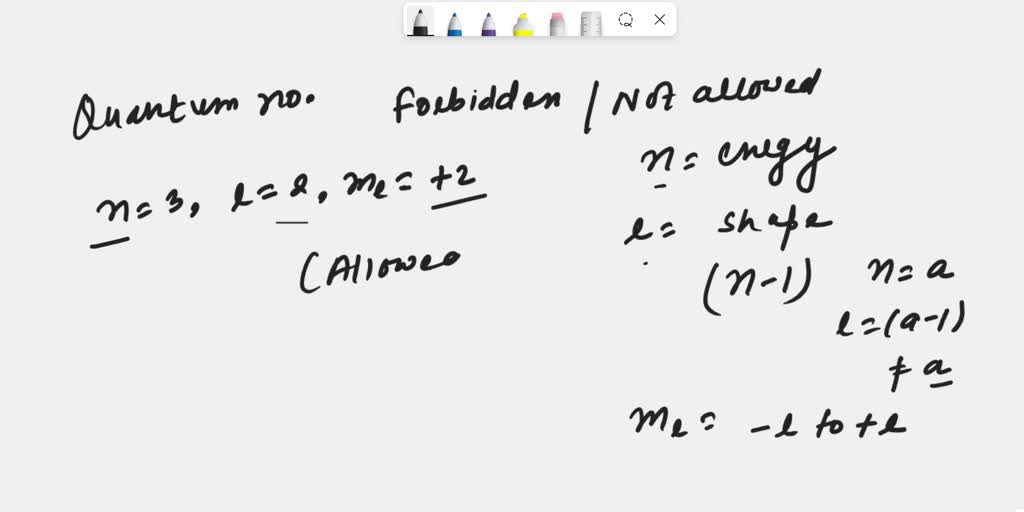 Quantum no. Forbidden / Not allowed
n = 3, l = 2, ml = +2
(Allowed
n = enegy
l = shape
(n-1)
n = a
l = (a-1)
≠ a
ml = -l to +l